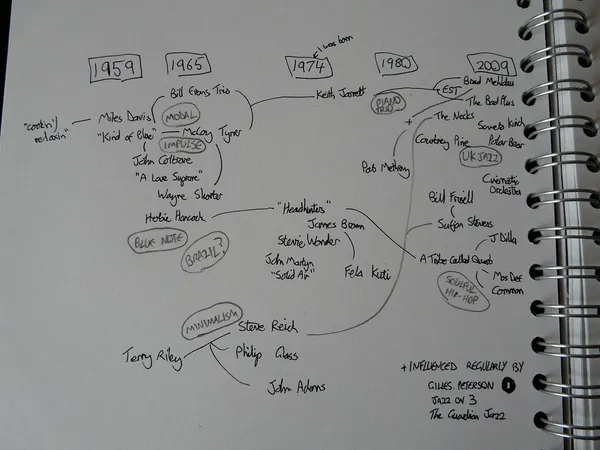 I was born
1959
1965
1974
1980
2009
"cookin'/
relaxin"
Miles Davis
"Kind of Blue"
Bill Evans Trio
MODAL
McCoy Tyner
IMPULSE
John Coltrane
"A Love Supreme"
Wayne Shorter
Herbie Hancock
BLUE NOTE
BRAZIL?
Keith Jarrett
PIANO
TRIO
+
Pat Metheny
"Headhunters"
James Brown
Stevie Wonder
John Martyn
"Solid Air"
Fela Kuti
Brad Mehldau
EST
The Bad Plus
The Necks
Soweto Kinch
Courtney Pine
Polar Bear
UK JAZZ
Cinematic
Orchestra
Bill Frisell
Sufjan Stevens
J Dilla
A Tribe Called Quest
Mos Def
Common
SOULFUL
HIP-HOP
MINIMALISM
Steve Reich
Terry Riley
Philip Glass
John Adams
+ INFLUENCED REGULARLY BY
GILLES PETERSON 1
JAZZ ON 3
The Guardian Jazz